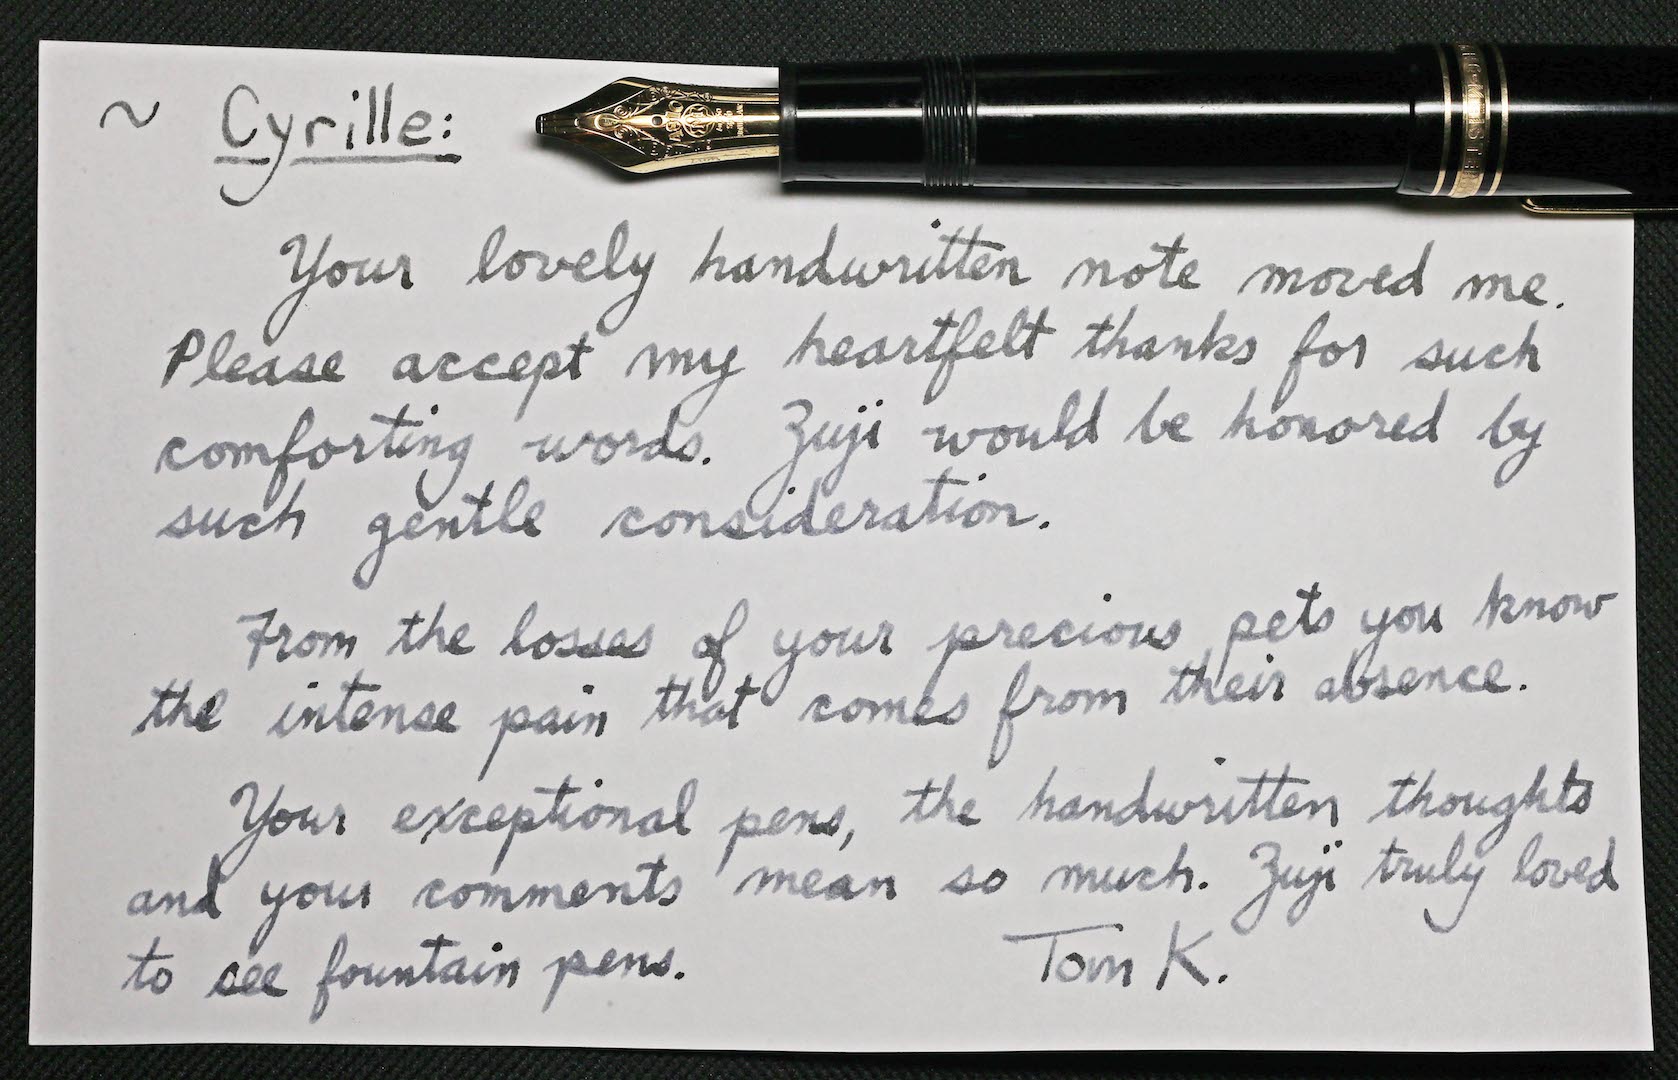 ~ Cyrille:
Your lovely handwritten note moved me.
Please accept my heartfelt thanks for such
comforting words. Zuji would be honored by
such gentle consideration.
From the losses of your precious pets you know
the intense pain that comes from their absence.
Your exceptional pens, the handwritten thoughts
and your comments mean so much. Zuji truly loved
to see fountain pens.
Tom K.